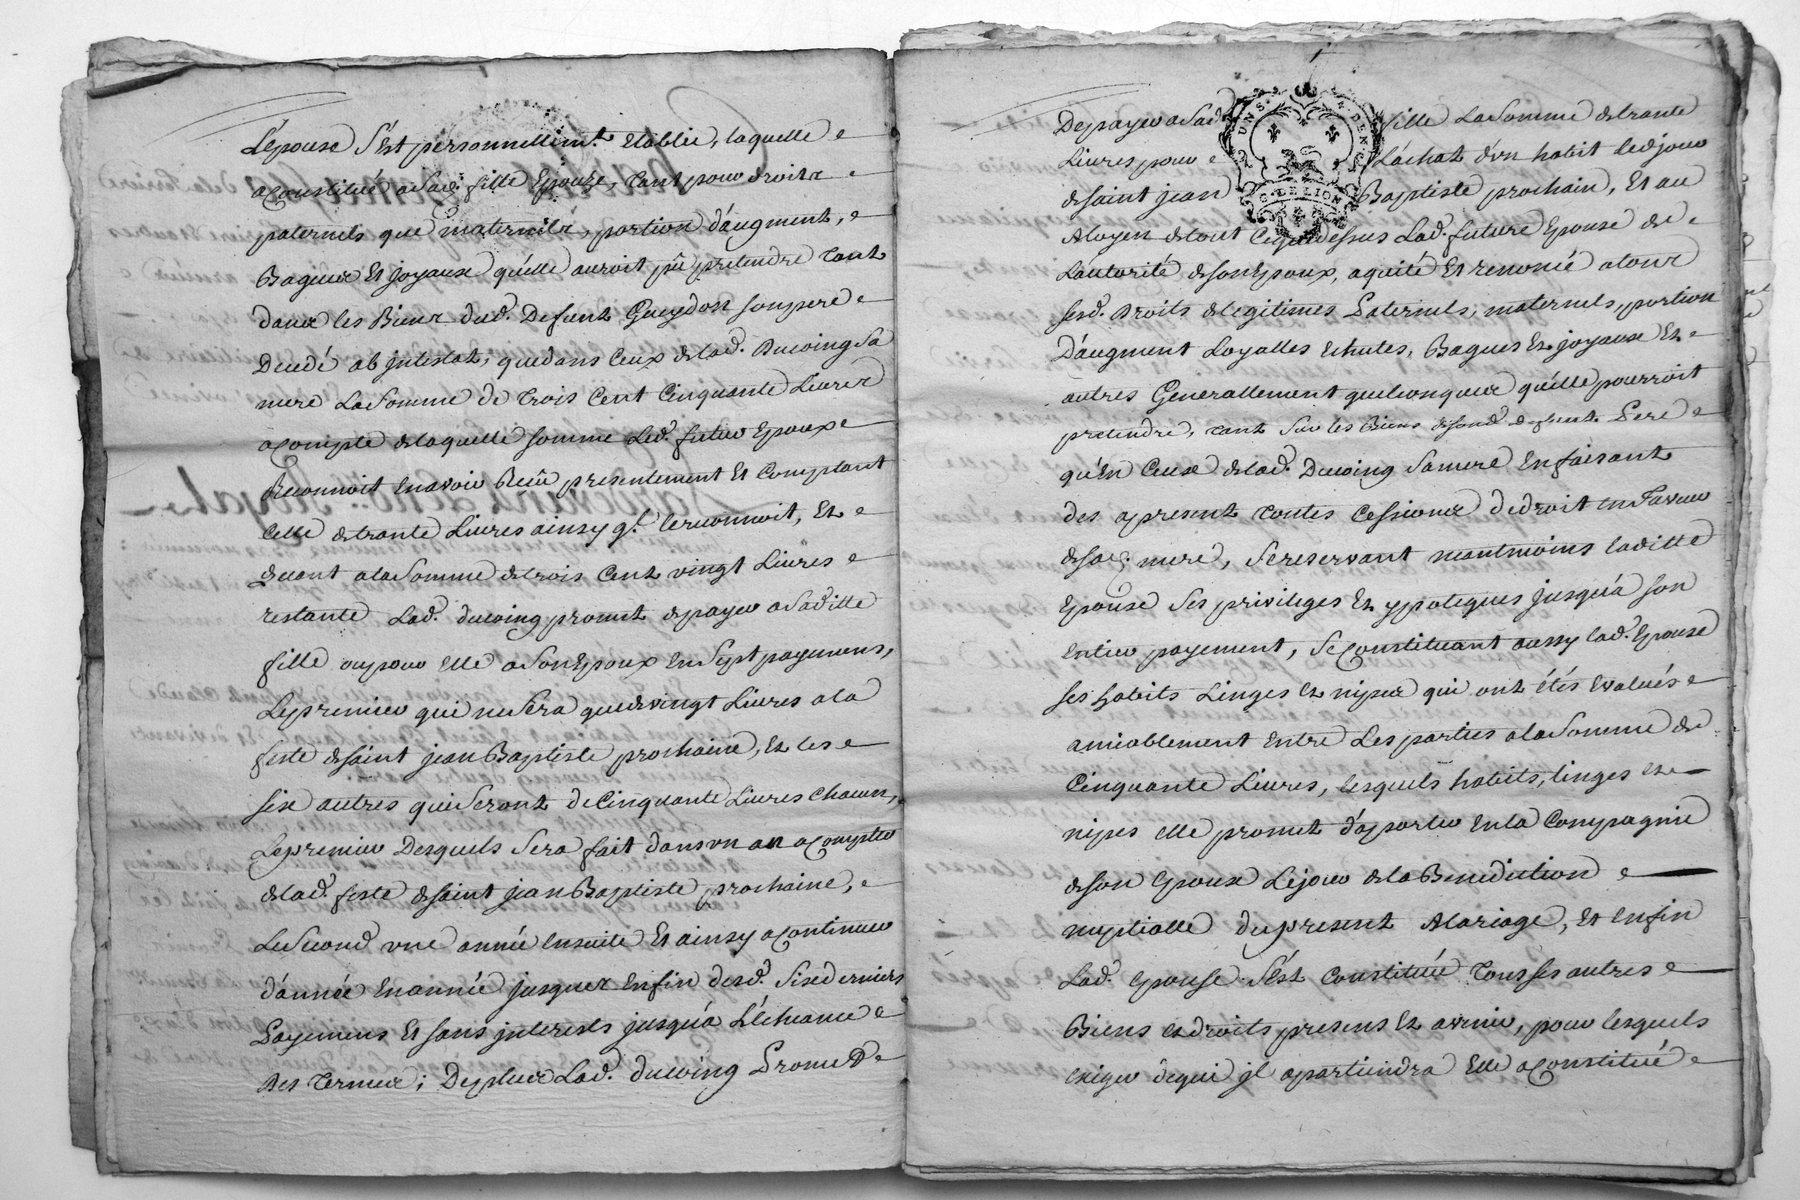 L'épouse S'Est personnellem.t Etablie, laquelle
a Constitué a Sad. fille Epouze, tant pour droits
paternels que maternels, portion d'augment,
Bagues Et joyaux qu'elle auroit pû pretendre tant
dans les Biens dud. Defunt Gueydon son pere
Decedé ab jntestat, que dans Ceux de lad. Ducoing Sa
mere La Somme de trois Cent Cinquante Livres
a Compte de laquelle somme Led. futur Epoux
Reconnoit En avoir Reçû presentement Et Comptant
Celle de trante Livres ainsy q.l le reconnoit, Et
quant a la Somme de trois Cent vingt Livres
restante Lad. ducoing promet de payer a Saditte
fille ou pour Elle a Son Epoux En Sept payemens,
Le premier qui ne Sera que de vingt Livres a la
feste de Saint jean Baptiste prochaine, Et les
six autres qui Seront de Cinquante Livres chacun,
Le premier Desquels Sera fait dans vn an a Compter
de lad. feste de Saint jean Baptiste prochaine,
Le Second vne année Ensuite Et ainsy a Continuer
d'année En année jusques Enfin desd. Six derniers
Payemens Et sans jnterests jusqu'a L'Echeance
des termes; De plus Lad. ducoing Promet
De payer a Sad. fille La Somme de trante
Livres pour L'achat d'vn habit Led. jour
de Saint jean Baptiste prochain, Et au
Moyen de tout Ce que dessus Lad. future Epouse de
L'autorité de Son Epoux, a quité Et renoncé a tous
sesd. Droits de legitimes Paternels, maternels, portion
D'augment Loyalles Echutes, Bagues Et joyaux Et
autres Generallement quelconques qu'elle pourroit
pretendre, tant Sur les Biens de Sond. defunt Pere
qu'En Ceux de lad. Ducoing Sa mere En faisant
des a present toutes Cessions de droit En faveur
de Sad. mere, Se reservant neantmoins laditte
Epouse Ses privileges Et ypoteques jusqu'a son
Entier payement, Se Constituant aussy lad. Epouse
ses habits Linges Et nipes qui ont étés Evalués
amiablement Entre Les parties a la Somme de
Cinquante Livres, lesquels habits, linges Et
nipes elle promet d'aporter En la Compagnie
de son Epoux Le jour de la Benediction
nuptialle du present Mariage, Et Enfin
Lad. Epouse S'Est Constituée tous Ses autres
Biens Et droits presens Et avenir, pour lesquels
Exiger de qui jl apartiendra Elle a Constitué
UNS. DEN.
G. DE LION